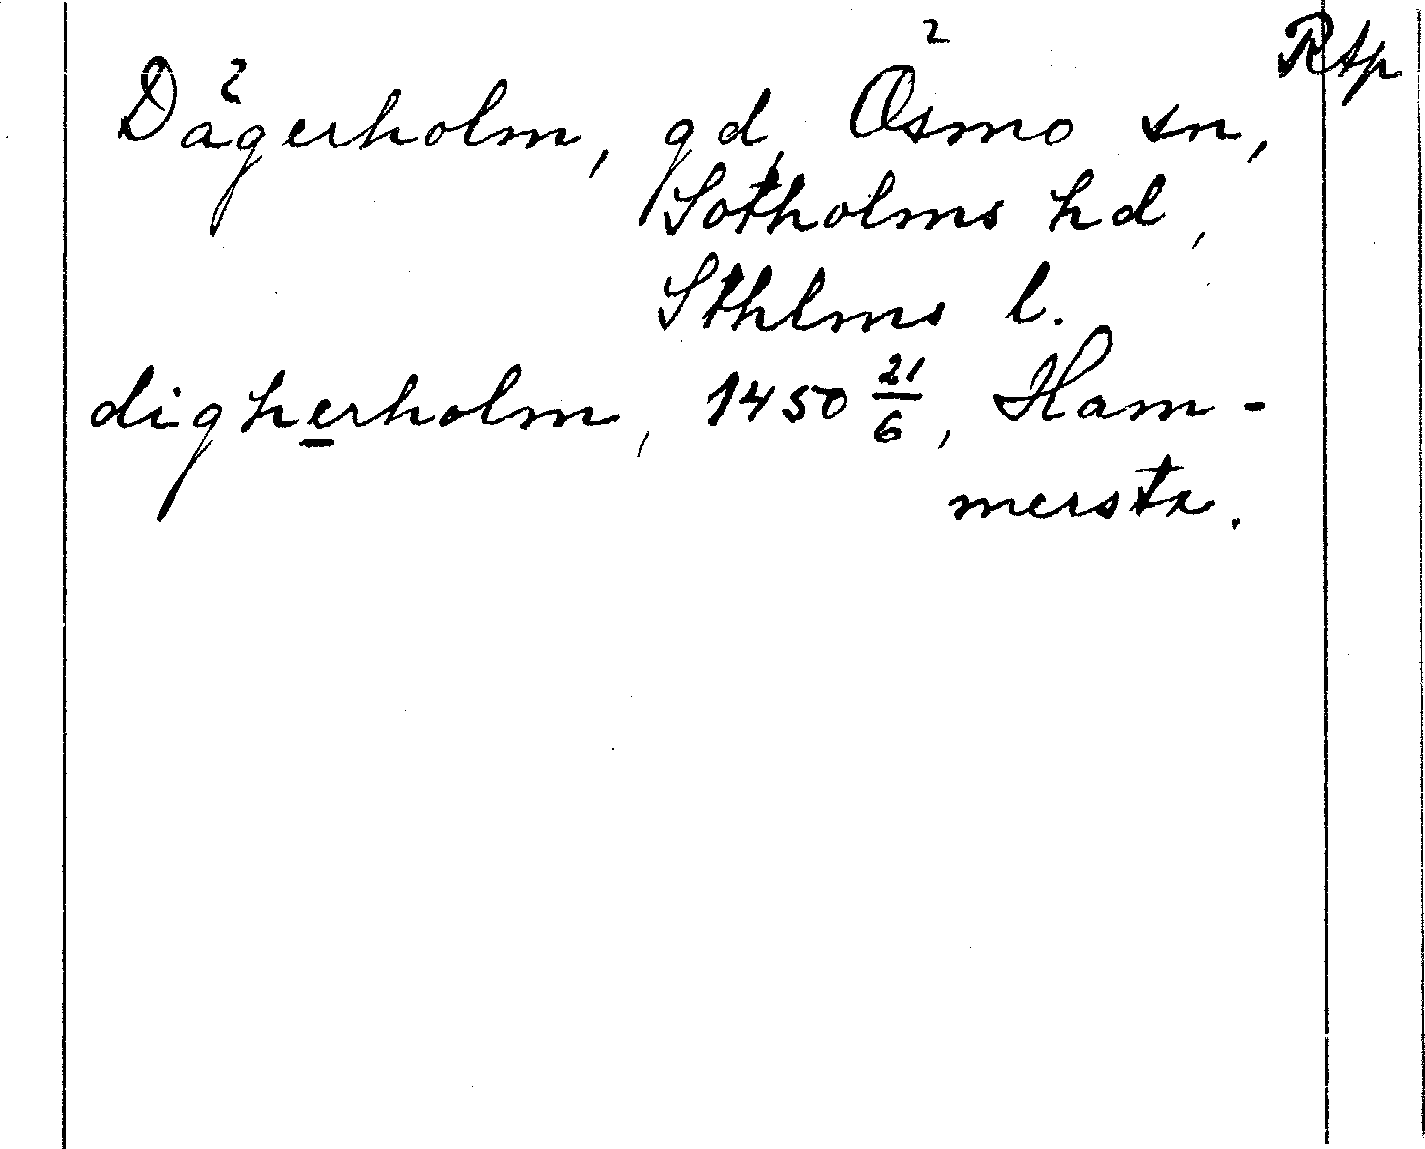 Rtp
Dägerholm, gd, Ösmo sn,
Sotholms hd,
Sthlms l.
digherholm, 1450 21/6, Ham-
mersta.